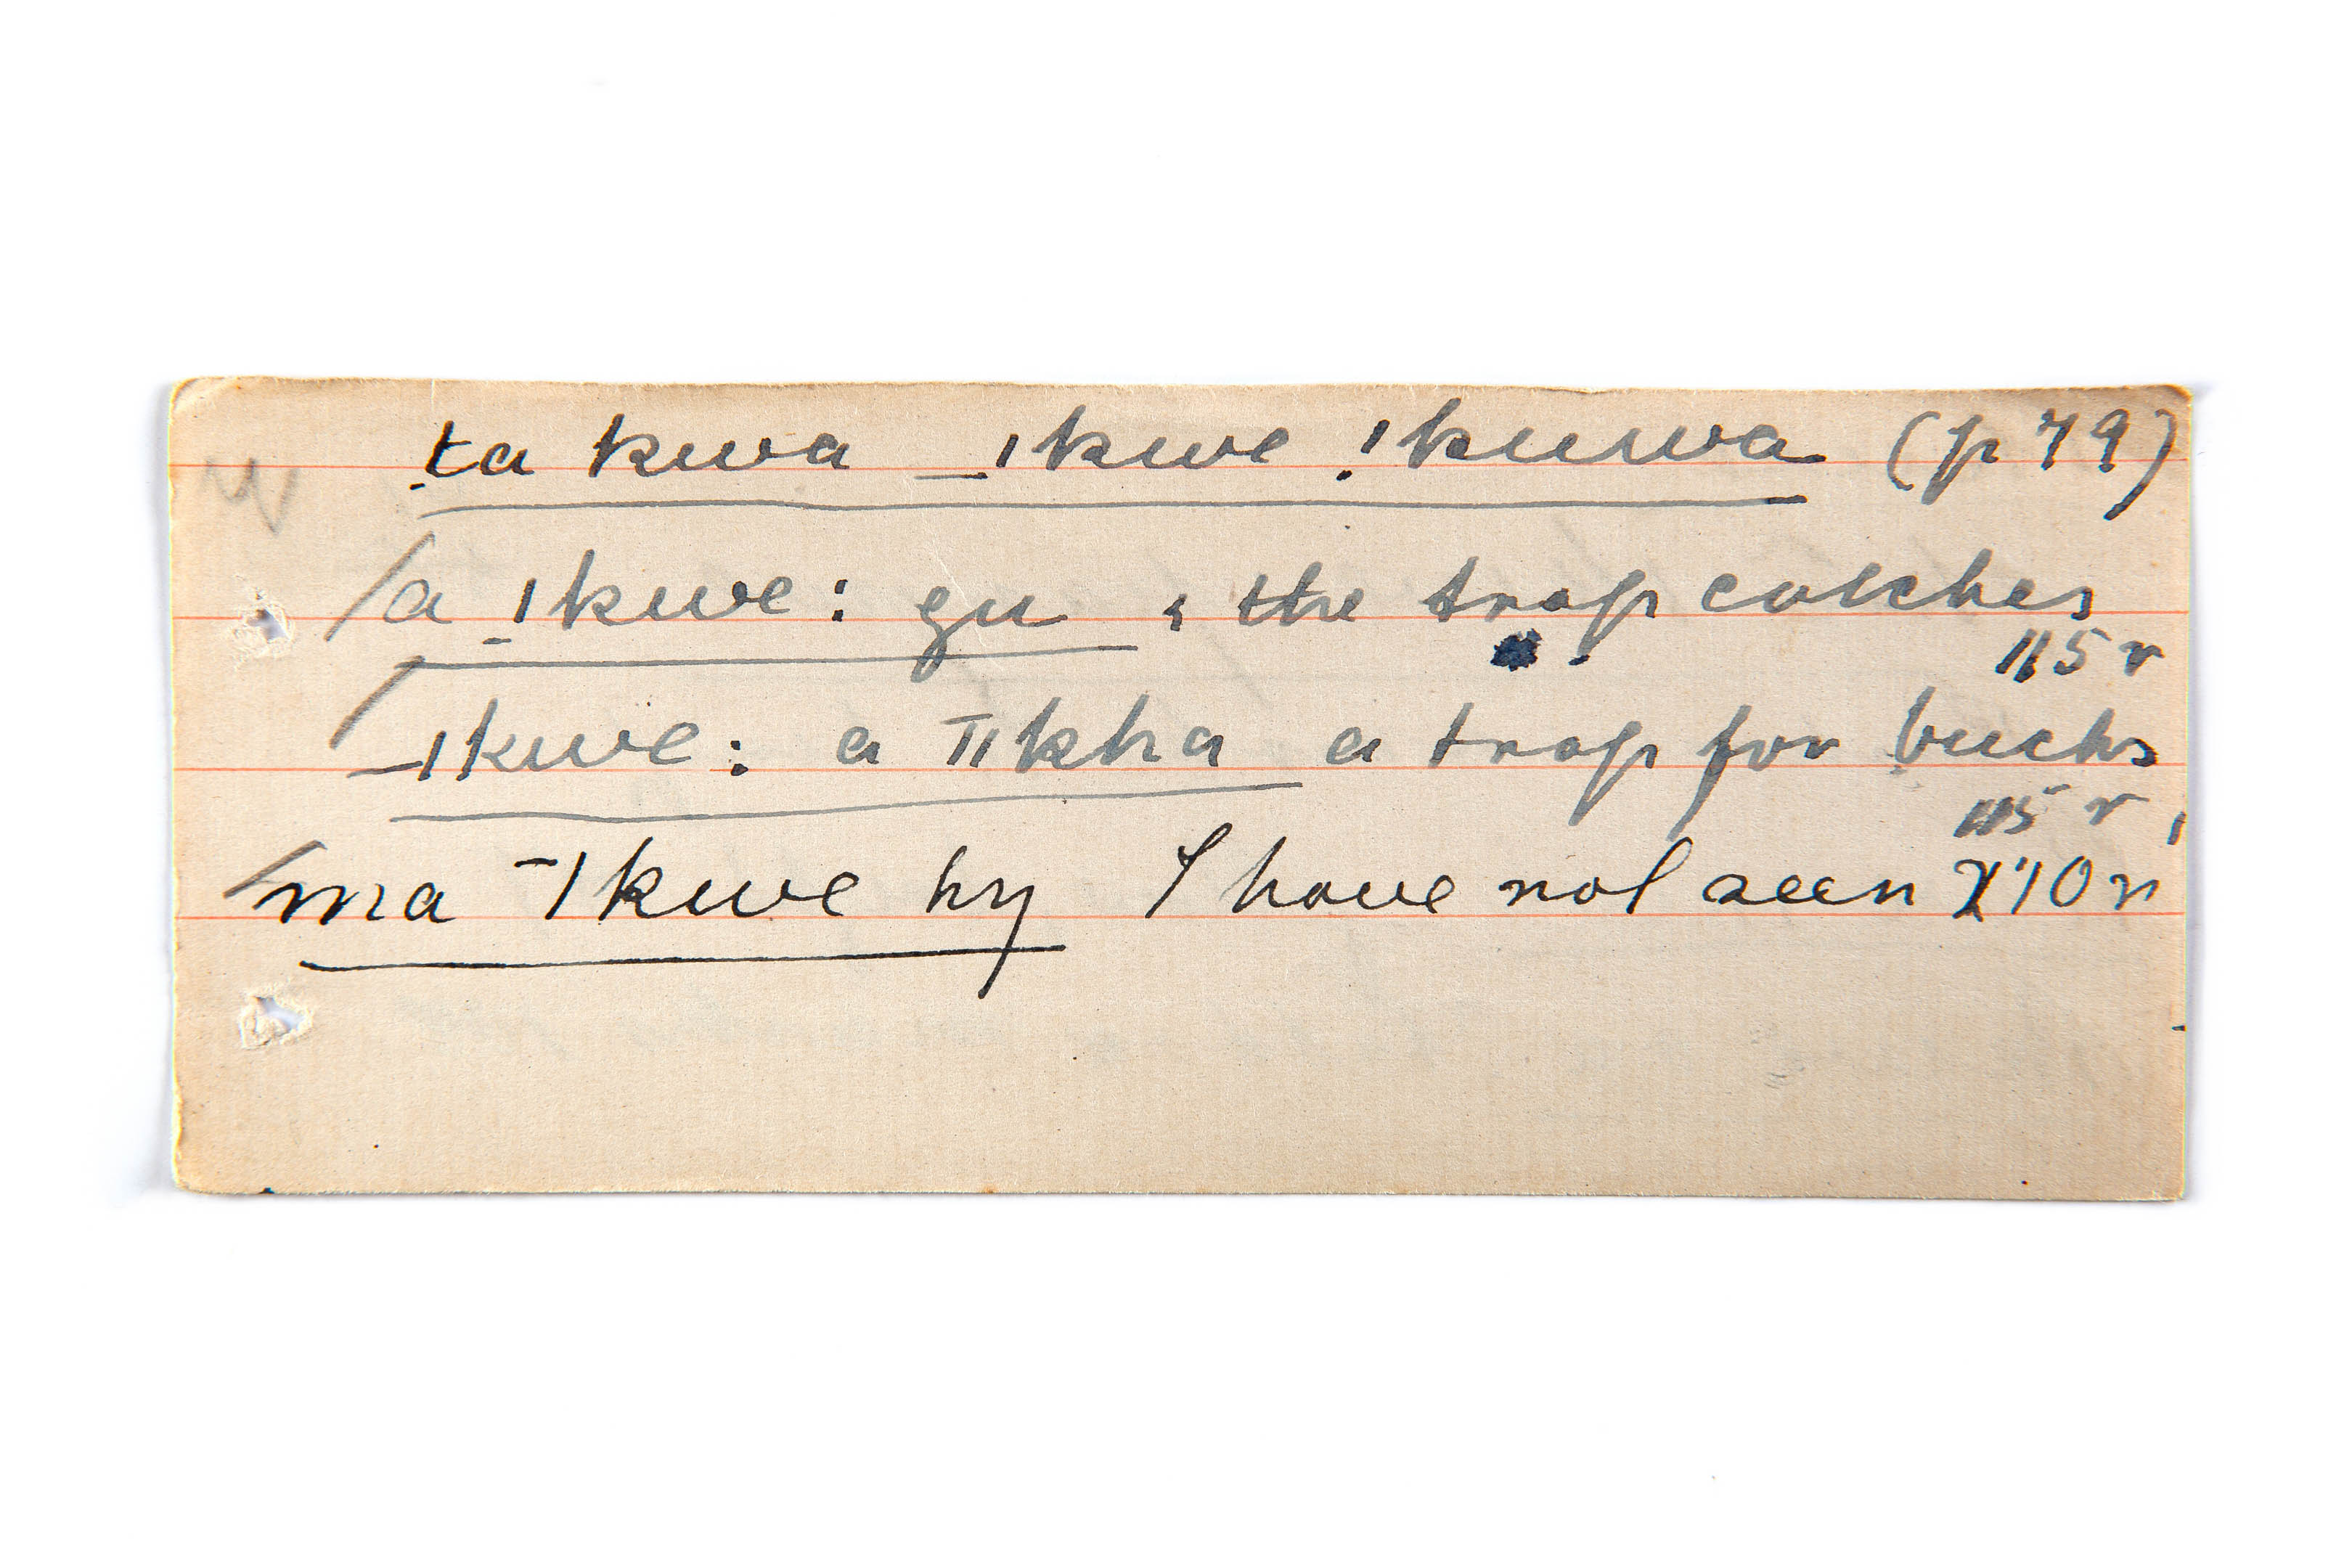 ta kwa _ǀkwe ˌǀkuwa (p 79)
/a ˍǀkwe: gu, the trap catches
115 r
/ _ǀkwe: a ˉǁkha a trap for bucks
115 r,
/ma ˉǀkwe hy I have not seen X'10 r